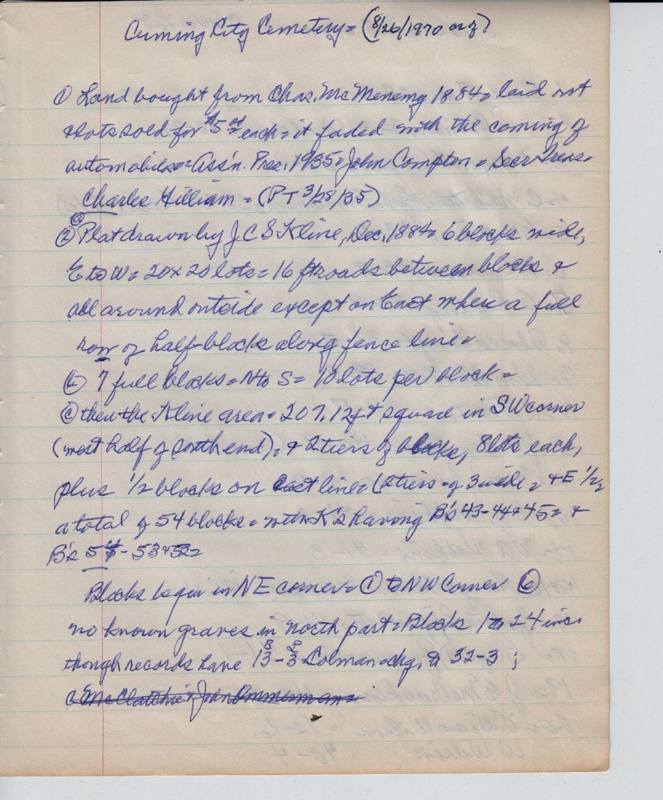 Cuming City Cemetery = (8/26/1970 org)
① Land bought from Chas. McMenemy 1884 = laid out
& lots sold for $5 00 each = it faded with the coming of
automobiles = Ass'n. Pres. 1935 = John Compton = Secr Treas.
Charles Gilliam = (PT 3/28/35)
② ⓐ Plat drawn by J C S Kline, Dec, 1884 = 6 blocks wide,
E to W = 20 x 20 lots = 16 ft roads between blocks &
all around outside except on East where a full
row of half-blocks along fence line =
ⓑ 7 full blocks = N to S = 10 lots per block =
ⓒ then the Kline area = 207.12 ft square in SW corner
(west half of south end), & 2 tiers of blocks, 8 lots each,
plus 1/2 blocks on East line = (2 tiers = of 3 wide = & E 1/2,
a total of 54 blocks = with K's having B's 43-44 & 45 = &
B's 54-53 & 52 =
Blocks begin in NE corner = ① to NW Corner ⑥
no known graves in north part = Blocks 1 to 24 inc.
though records have 13-3 Colman chg, to 32-3 ;
& McClatchie & John Ammerman =